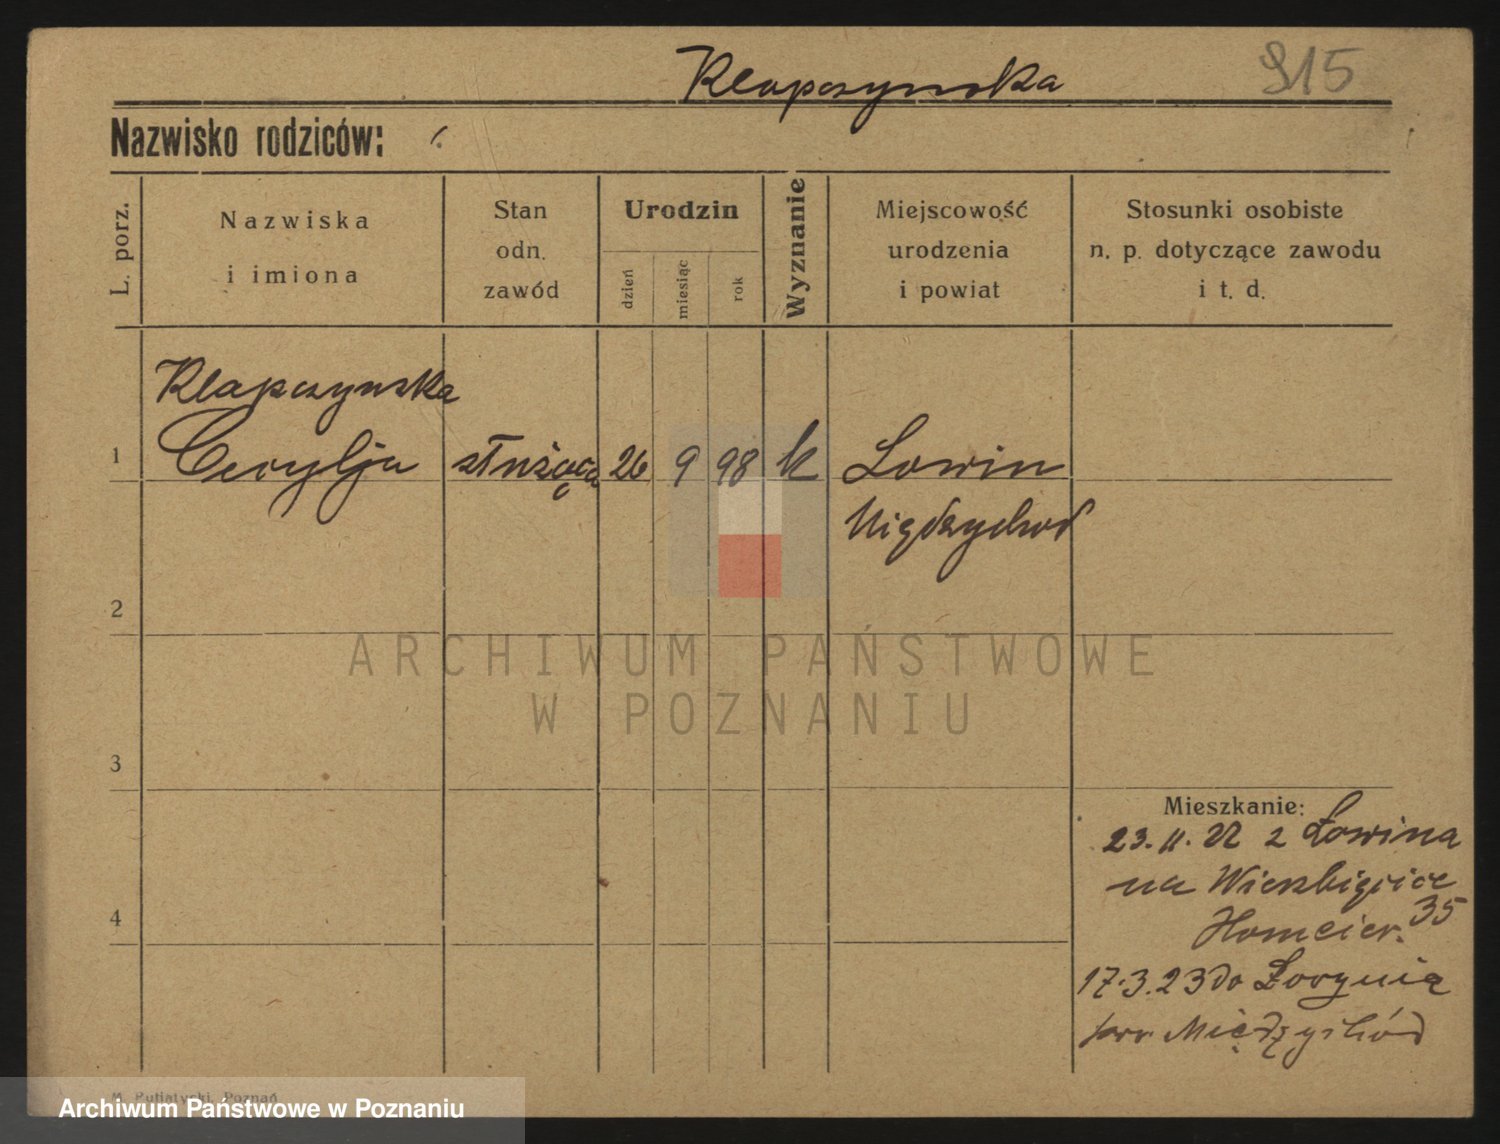 Klapczynska
915
Nazwisko rodziców:
L. porz.
Nazwiska
i imiona
Stan
odn.
zawód
Urodzin
dzień
miesiąc
rok
Wyznanie
Miejscowość
urodzenia
i powiat
Stosunki osobiste
n. p. dotyczące zawodu
i t. d.
Klapczynska
1 Cecylja służąca 26 9 98 k Lowin
Międzychod
2
3
4
Mieszkanie:
23. 11. 22 z Łowina
na Wierzbięcice
35
17.3.23 do
pow Międzychód
ARCHIWUM PAŃSTWOWE
W POZNANIU
M. Putiatycki, Poznań
Archiwum Państwowe w Poznaniu